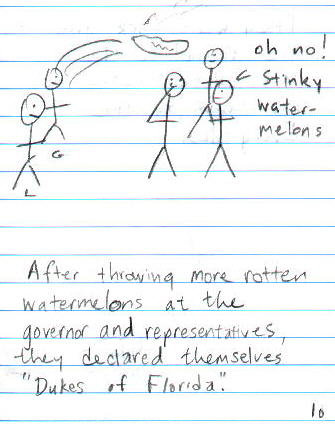 oh no!
Stinky
water-
melons
G
L
After throwing more rotten
watermelons at the
governor and representatives,
they declared themselves
"Dukes of Florida".
10